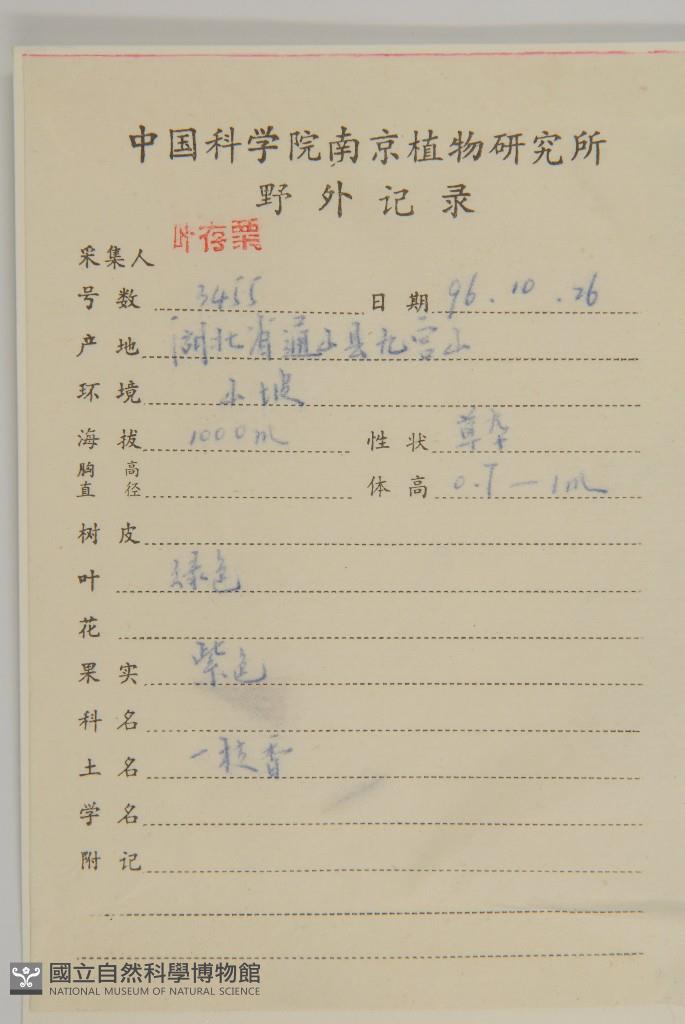 中国科学院南京植物研究所
野外记录
采集人 叶存粟
号数 3455 日期 96.10.26
产地 湖北省通山县九宫山
环境 山坡
海拔 1000m 性状 草本
胸高直径 体高 0.8—1m
树皮
叶 绿色
花
果实 紫色
科名
土名 一枝香
学名
附记
國立自然科學博物館
NATIONAL MUSEUM OF NATURAL SCIENCE